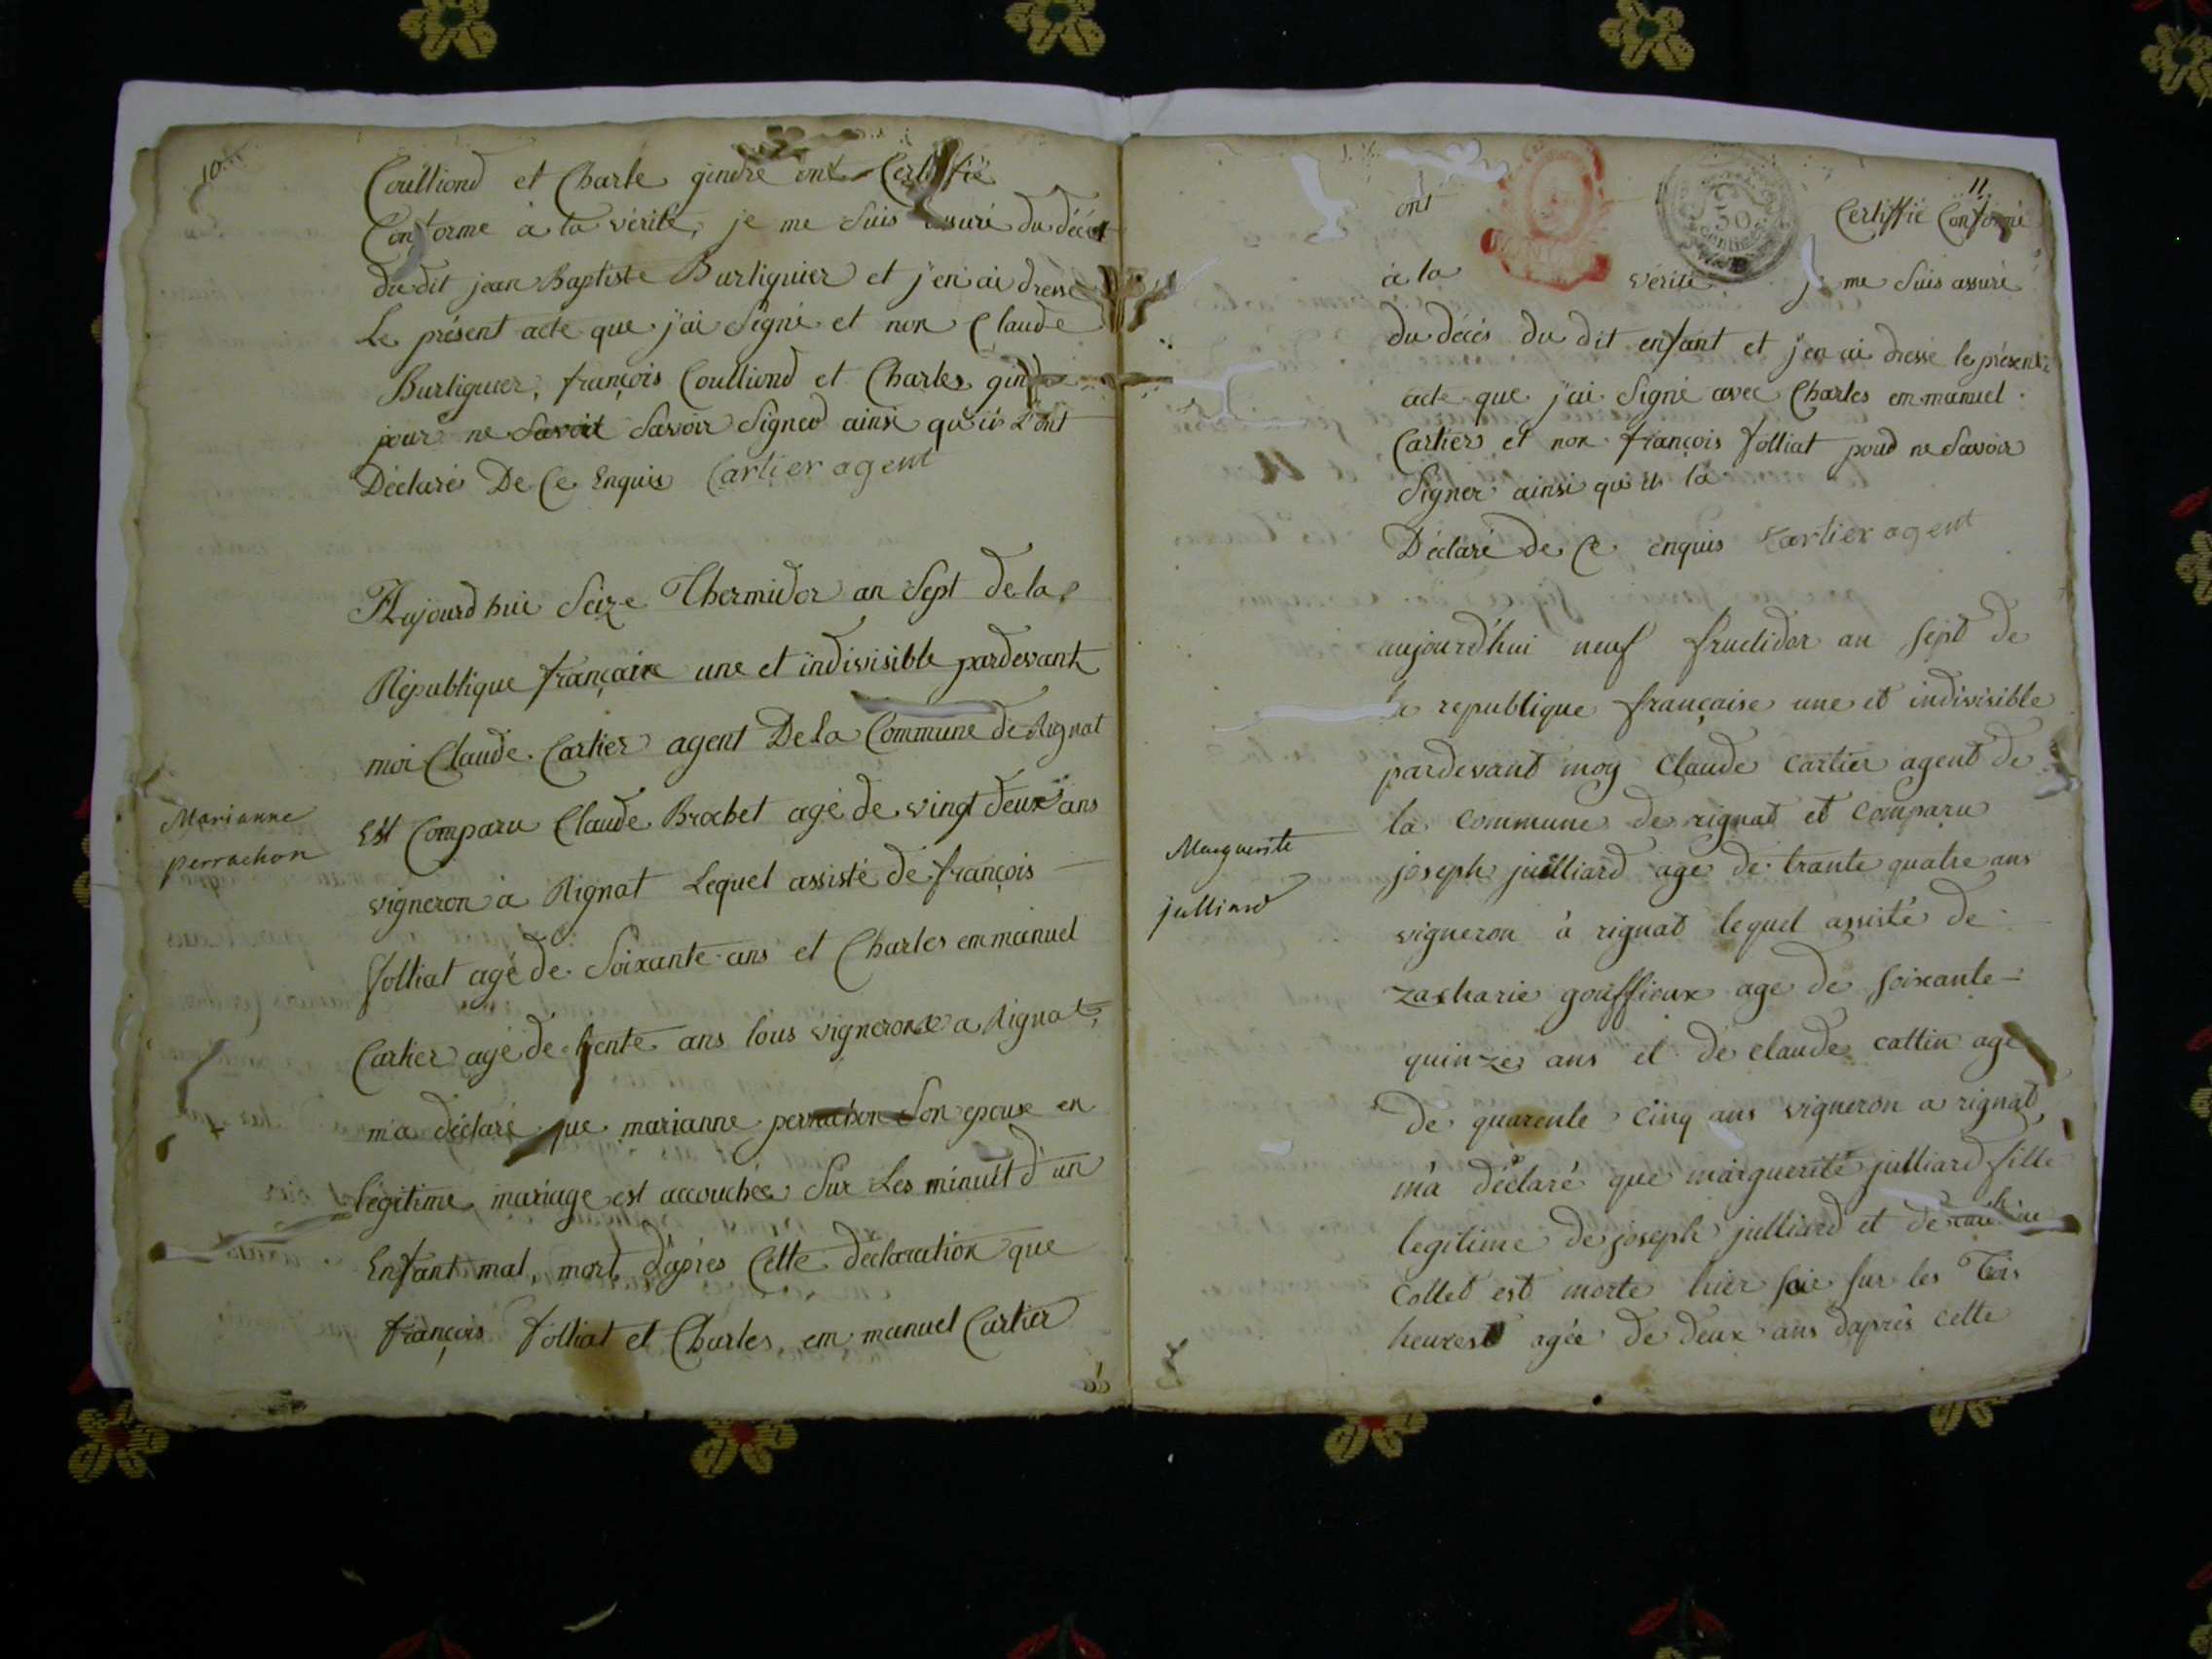 10.
Coulliond et Charle gindre ont Certiffié
Conforme à la vérité, je me Suis assuré du décét
du dit jean Baptiste Burtiguier et j'en ai dressé
Le présent acte que j'ai Signé et non Claude
Burtiguier, françois Coulliond et Charles gin
pour ne Savoir Signer ainsi qu'il L'ont
Déclaré De Ce Enquis Cartier agent
Aujourd huie Seize Thermidor an Sept de la
République françaixe une et indivisible pardevant
moi Claude Cartier agent De La Commune de Rignat
Est Comparu Claude Brochet agé de vingt deux ans
Marianne
perrachon
vigneron à Rignat Lequel assisté de françois
folliat agé de Soixante ans et Charles emmanuel
Cartier agé de trente ans tous vignerons a Rignat,
m'a déclaré que marianne perrachon Son epouse en
légitime mariage est accouchée Sur Les minuit d'un
Enfant mal, mort, d'après Cette déclaration que
françois folliat et Charles, em manuel Cartier
11
ont Certiffié Conforme
50 centimes
à la vérité je me Suis assuré
du décés du dit enfant et j'en ai dressé le présent
acte que j'ai Signé avec Charles emmanuel
Cartier et non françois folliat pour ne Savoir
Signer ainsi qu'il la
Déclaré de Ce enquis Cartier agent
aujourd'hui neuf fructidor an sept de
la republique française une et indivisible
pardevant moy Claude cartier agent de
la commune de rignat et comparu
Marguerite
julliard
joseph juilliard age de trante quatre ans
vigneron à rignat lequel assisté de
zacharie gouffieux age de soixante
quinze ans et de claude cattin age
de quarente cinq ans vigneron a rignat,
m'a déclaré que marguerite julliard fille
legitime de joseph julliard et de
collet est morte hier soir sur les Trois
heures agée de deux ans d'après cette